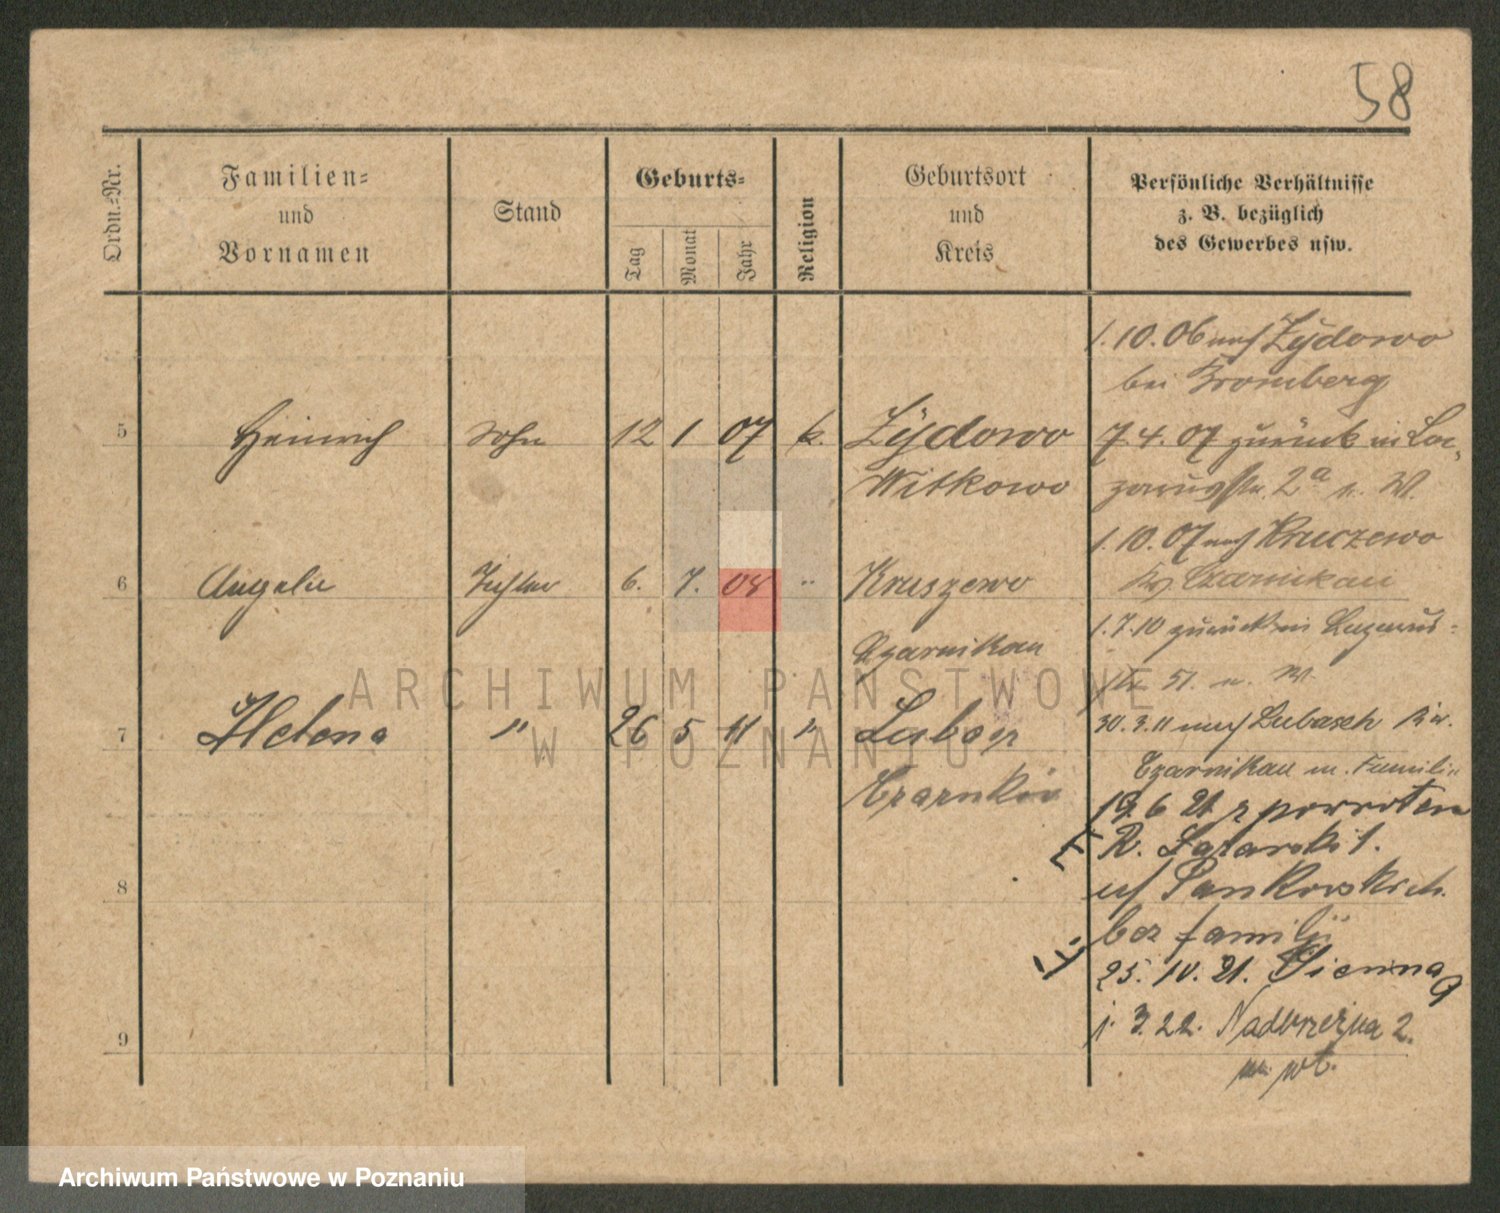 58
Ordn.=Nr.
Familien=
und
Vornamen
Stand
Geburts=
Tag
Monat
Jahr
Religion
Geburtsort
und
Kreis
Persönliche Verhältnisse
z. B. bezüglich
des Gewerbes usw.
1.10.06 nach Żydowo
bei Bromberg
5 Heinrich Sohn 12 1 07 k. Żydowo
Witkowo
7.4.07 zurück in Laz=
arusstr. 2a n. W.
1.10.07 nach Kruczewo
Kr. Czarnikau
6 Angela Tochter 6. 7. 08 " Kruszewo
Czarnikau
1.7.10 zurück in Lazarus=
str 51. n. W.
7 Helena " 26 5 11 " Lubasz
Czarnków
30.3.11 nach Lubasch Kr.
Czarnikau m. Familie
19.6 21 z powrotem
R. Lazarski 1.
bez familji
25.10.21.
1.3.22. Nadbrzeżna 2.
8
9
ARCHIWUM PAŃSTWOWE
W POZNANIU
Archiwum Państwowe w Poznaniu